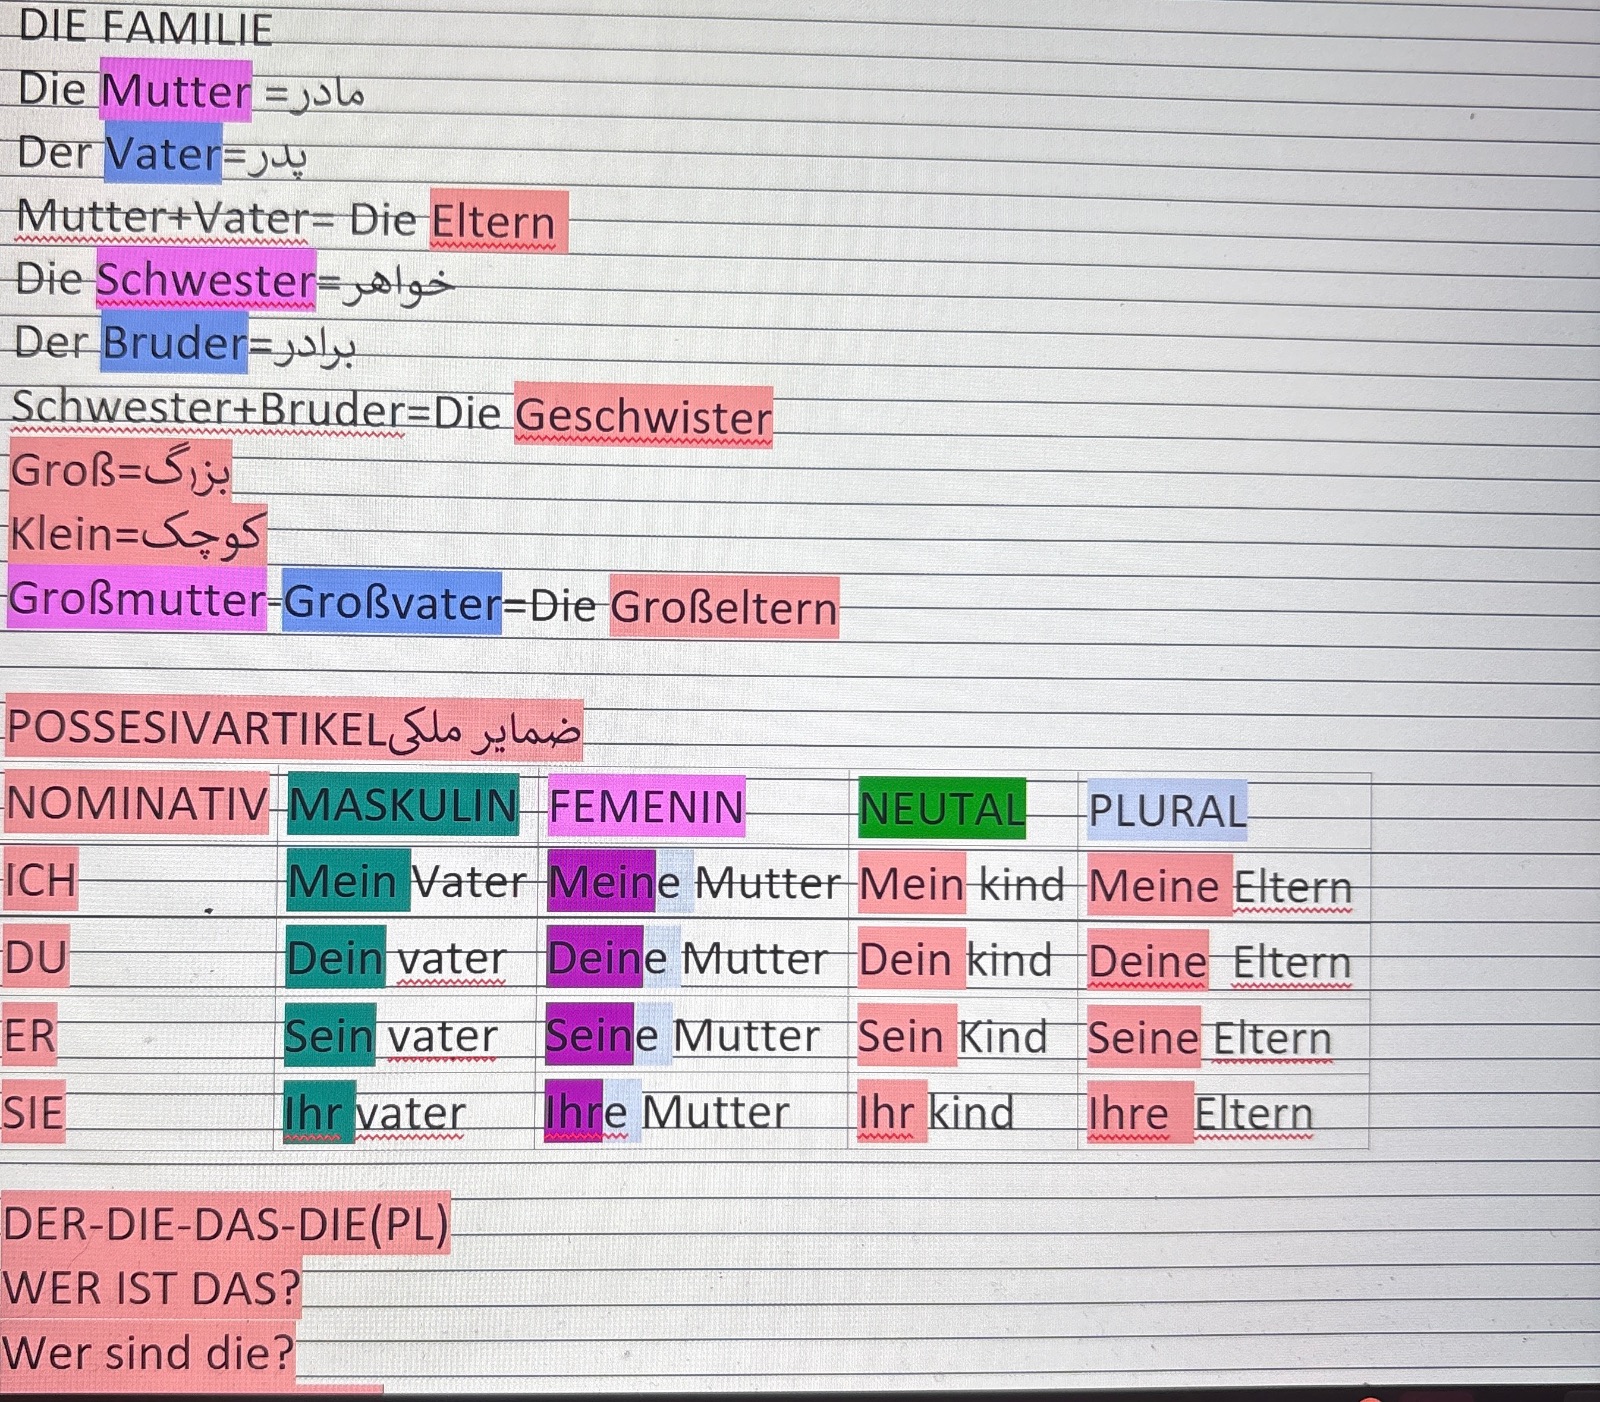 DIE FAMILIE
Die Mutter =مادر
Der Vater=پدر
Mutter+Vater= Die Eltern
Die Schwester=خواهر
Der Bruder=برادر
Schwester+Bruder=Die Geschwister
Groß=بزرگ
Klein=کوچک
Großmutter-Großvater=Die Großeltern
POSSESIVARTIKELضمایر ملکی
NOMINATIV MASKULIN FEMENIN NEUTAL PLURAL
ICH Mein Vater Meine Mutter Mein kind Meine Eltern
DU Dein vater Deine Mutter Dein kind Deine Eltern
ER Sein vater Seine Mutter Sein Kind Seine Eltern
SIE Ihr vater Ihre Mutter Ihr kind Ihre Eltern
DER-DIE-DAS-DIE(PL)
WER IST DAS?
Wer sind die?